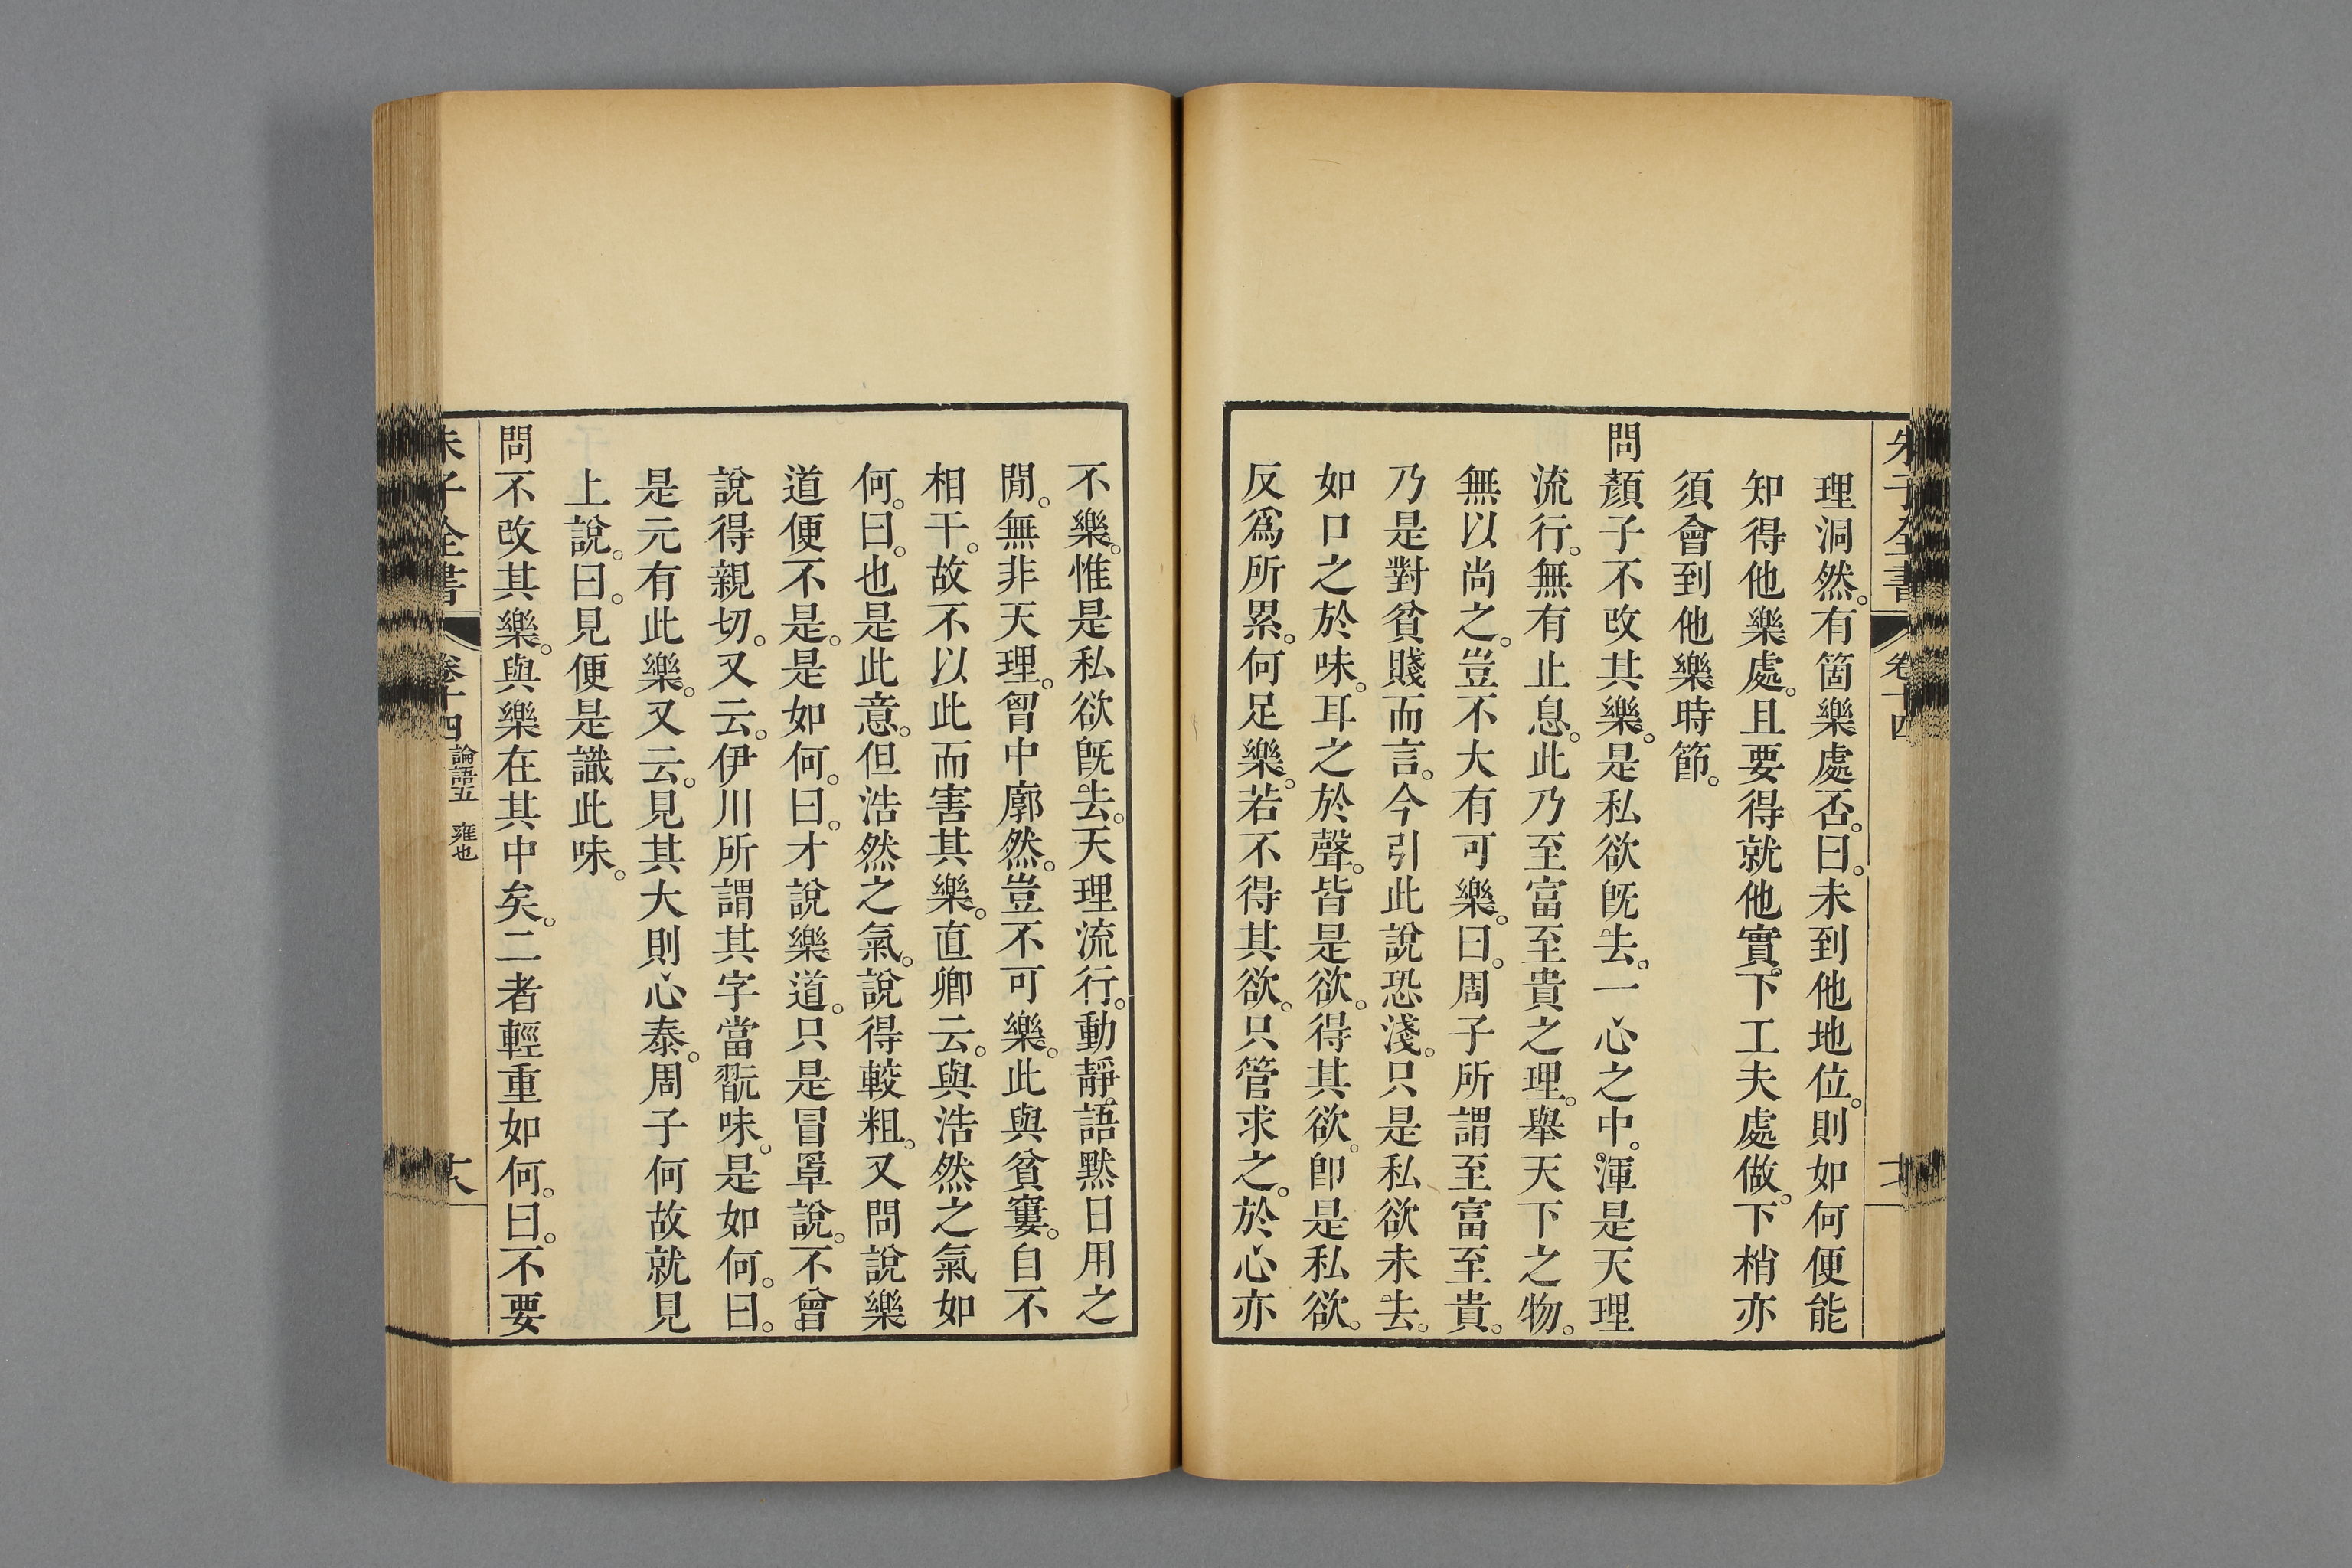 理洞然。有箇樂處否。曰。未到他地位。則如何便能
知得他樂處。且要得就他實下工夫處做。下梢亦
須會到他樂時節。
問顏子不改其樂。是私欲旣去。一心之中。渾是天理
流行。無有止息。此乃至富至貴之理。舉天下之物。
無以尚之。豈不大有可樂。曰。周子所謂至富至貴。
乃是對貧賤而言。今引此說恐淺。只是私欲未去。
如口之於味。耳之於聲。皆是欲。得其欲。卽是私欲。
反爲所累。何足樂。若不得其欲。只管求之。於心亦
不樂。惟是私欲旣去。天理流行。動靜語默日用之
閒。無非天理。胷中廓然。豈不可樂。此與貧窶。自不
相干。故不以此而害其樂。直卿云。與浩然之氣如
何。曰。也是此意。但浩然之氣。說得較粗。又問說樂
道便不是。是如何。曰。才說樂道。只是冒罩說。不曾
說得親切。又云。伊川所謂其字當翫味。是如何。曰。
是元有此樂。又云。見其大則心泰。周子何故就見
上說。曰。見便是識此味。
問不改其樂。與樂在其中矣。二者輕重如何。曰。不要
朱子全書 卷十四 論語五 雍也